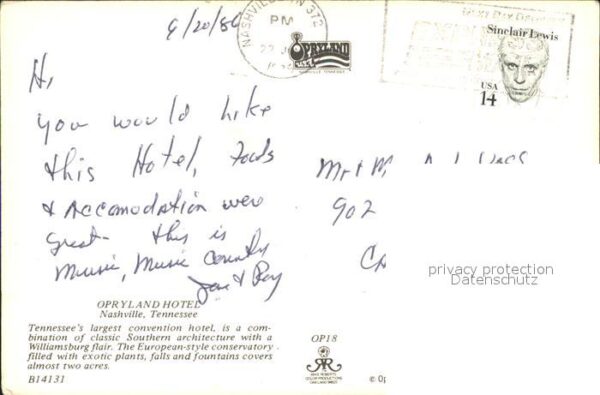 6/20/86
NASHVILLE, TN 372
PM
OPRYLAND
U.S.A.
NASHVILLE, TENNESSEE
Sinclair Lewis
USA
14
Hi,
You would like
this Hotel, Foods
& Accomodation were
great. this is
Music, Music Country
& Ray
Mr + M
902
privacy protection
Datenschutz
OPRYLAND HOTEL
Nashville, Tennessee
Tennessee's largest convention hotel, is a com-
bination of classic Southern architecture with a
Williamsburg flair. The European-style conservatory
filled with exotic plants, falls and fountains covers
almost two acres.
B14131
OP18
MIKE ROBERTS
COLOR PRODUCTIONS
© Op